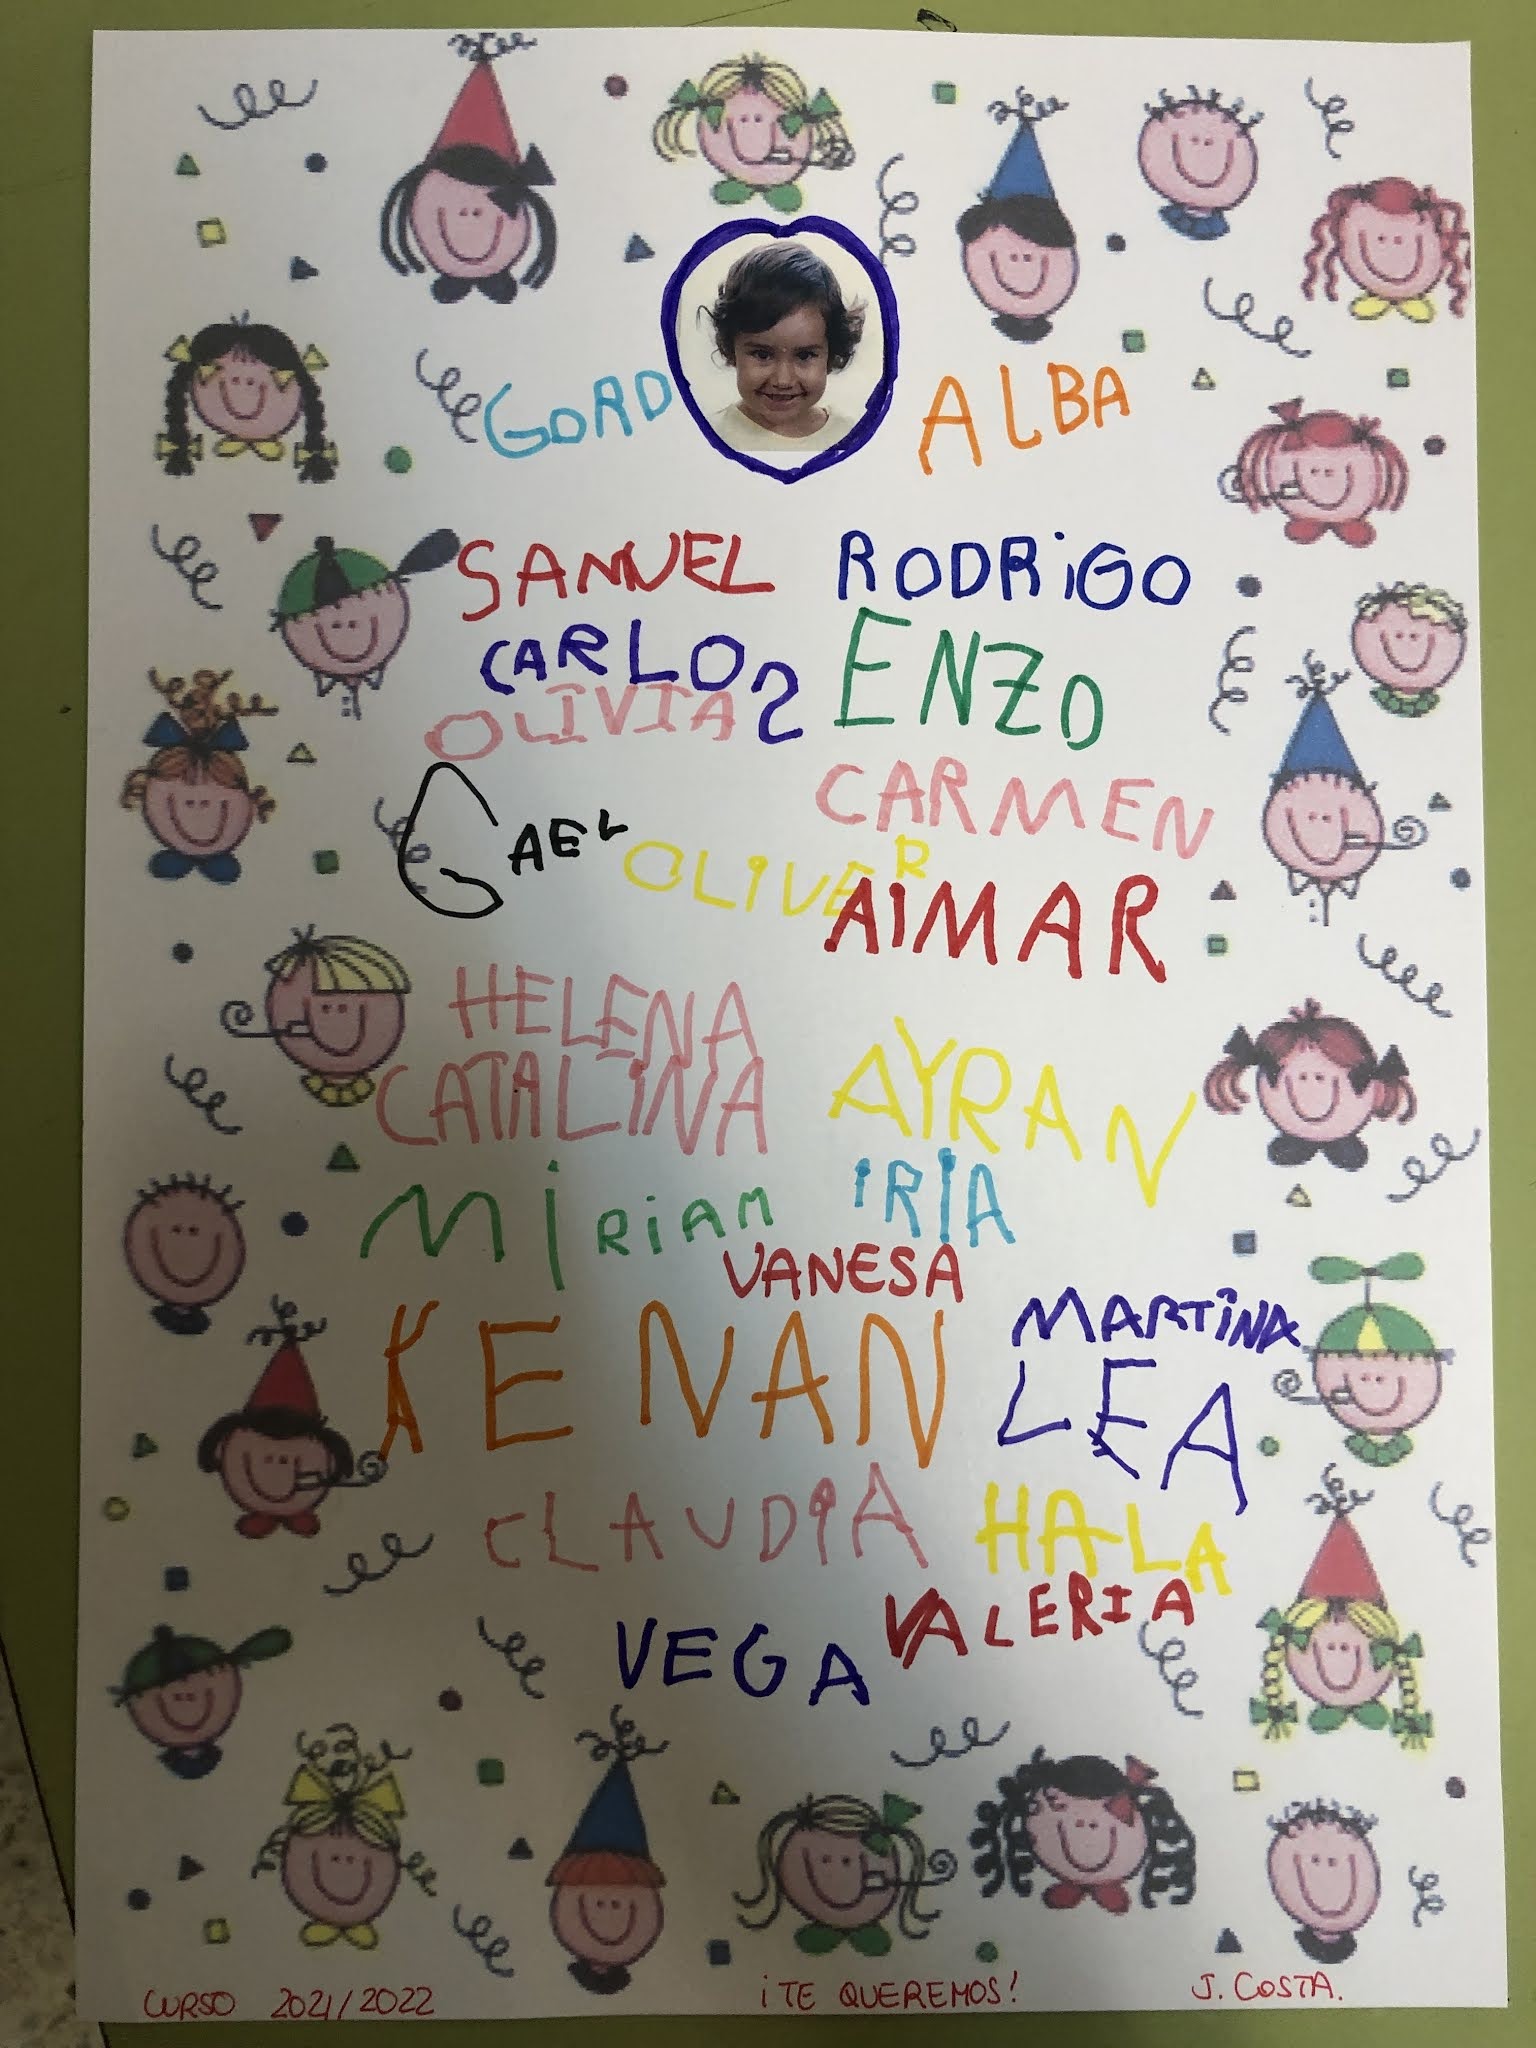 GORD ALBA
SAMUEL RODRiGO
CARLOS ENZO
OLIVIA
CARMEN
GAEL OLIVER
AIMAR
HELENA
CATALINA AYRAN
MIRIAM IRIA
VANESA
KENAN MARTINA
LEA
CLAUDIA HALA
VALERIA
VEGA
CURSO 2021/2022 ¡TE QUEREMOS! J. COSTA.